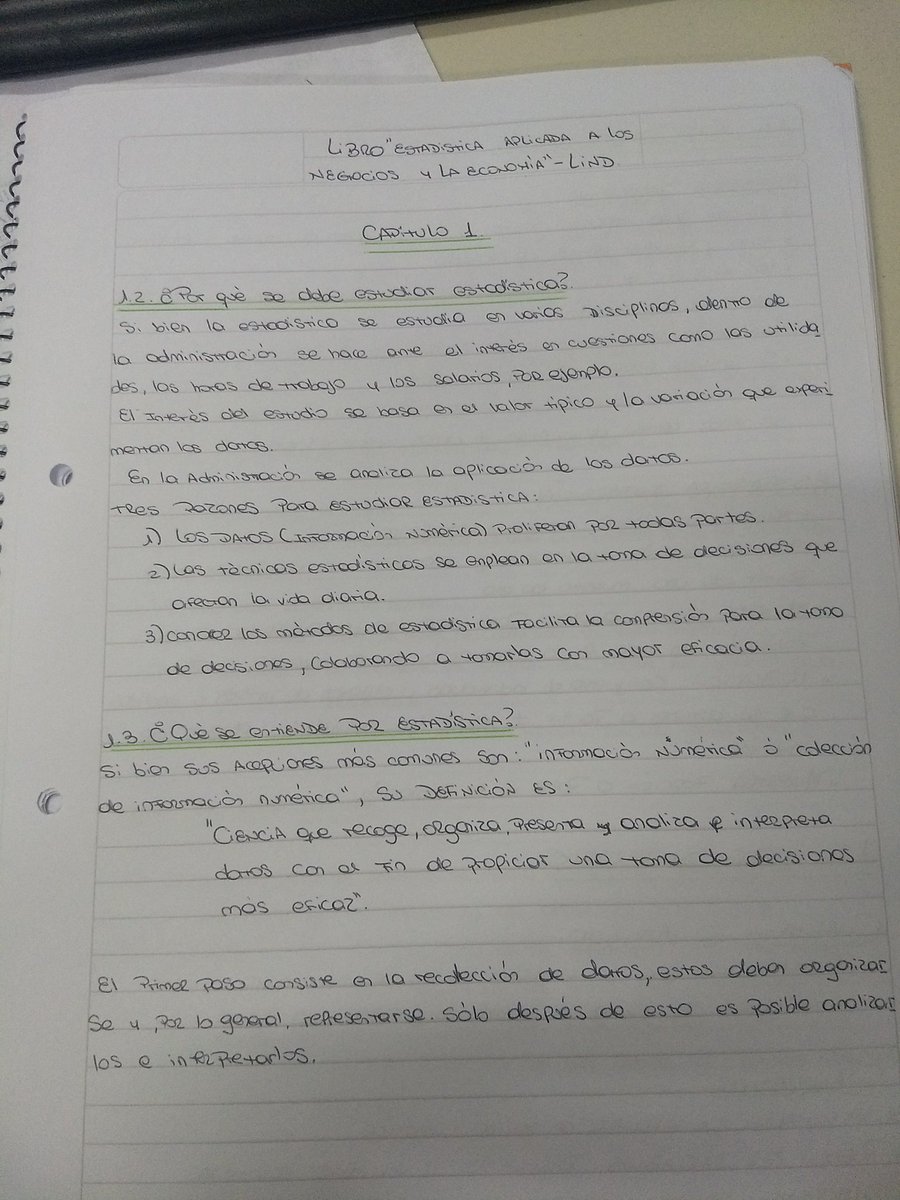 LIBRO "ESTADISTICA APLICADA A LOS
NEGOCIOS Y LA ECONOMÍA" - LIND
CAPITULO 1.
1.2. ¿Por què se debe estudiar estadística?
Si bien la estadística se estudia en varias Disciplinas, dentro de
la administración se hace ante el interés en cuestiones como las utilida
des, las horas de trabajo y los salarios, por ejemplo.
El Interés del estudio se basa en el valor típico y la variación que experi
mentan los datos.
En la Administración se analiza la aplicación de los datos.
TRES RAZONES PARA ESTUDIAR ESTADISTICA:
1) LOS DATOS (INFORMACIÓN NUMÉRICA) Proliferan por todas partes.
2) Las tècnicas estadísticas se emplean en la toma de decisiones que
afectan la vida diaria.
3) conocer los métodos de estadística Facilita la comprensión para la toma
de decisiones, colaborando a tomarlas con mayor eficacia.
1.3. ¿Què se entiende por ESTADÍSTICA?
Si bien sus Acepciones más comunes son: "información Numérica" ó "colección
de información numérica", SU DEFINICIÓN ES:
"CIENCIA que recoge, organiza, presenta y analiza e interpreta
datos con el fin de propiciar una toma de decisiones
más eficaz".
El Primer paso consiste en la recolección de datos, estos deben organizar
se y, por lo general, representarse. Sólo después de esto es posible analizar
los e interpretarlos.